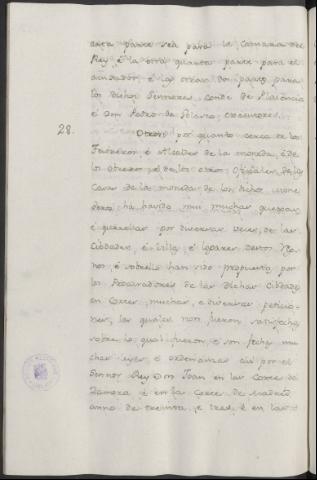 esta parte sea para la Camara del
Rey, é la otra quarta parte para el
acusador, é las otras dos partes para
los dichos Sennores, conde de Plasencia
é Don Pedro de
28. Otrosi por quanto cerca de los
Tesoreros é Alcaldes de la moneda, é de
los obreros, é de los otros Oficiales de las
Casas de la moneda de los dichos mone
deros ha havido mui muchas quexas
é querellas por diversas veces, de las
Cibdades, é villas, é logares destos Rey
nos, é sobrello han sido propuestas por
los Procuradores de las dichas Cibdades
en Cortes, muchas, e diversas peticio
nes, las quales non fueron satisfechas
sobre lo qual fueron, e son fechas mu
chas leyes, é ordenanzas asi por el
Sennor Rey Don Joan en las Cortes de
Zamora é en las Cortes de Madrid
anno de treinta, e tres, é en las